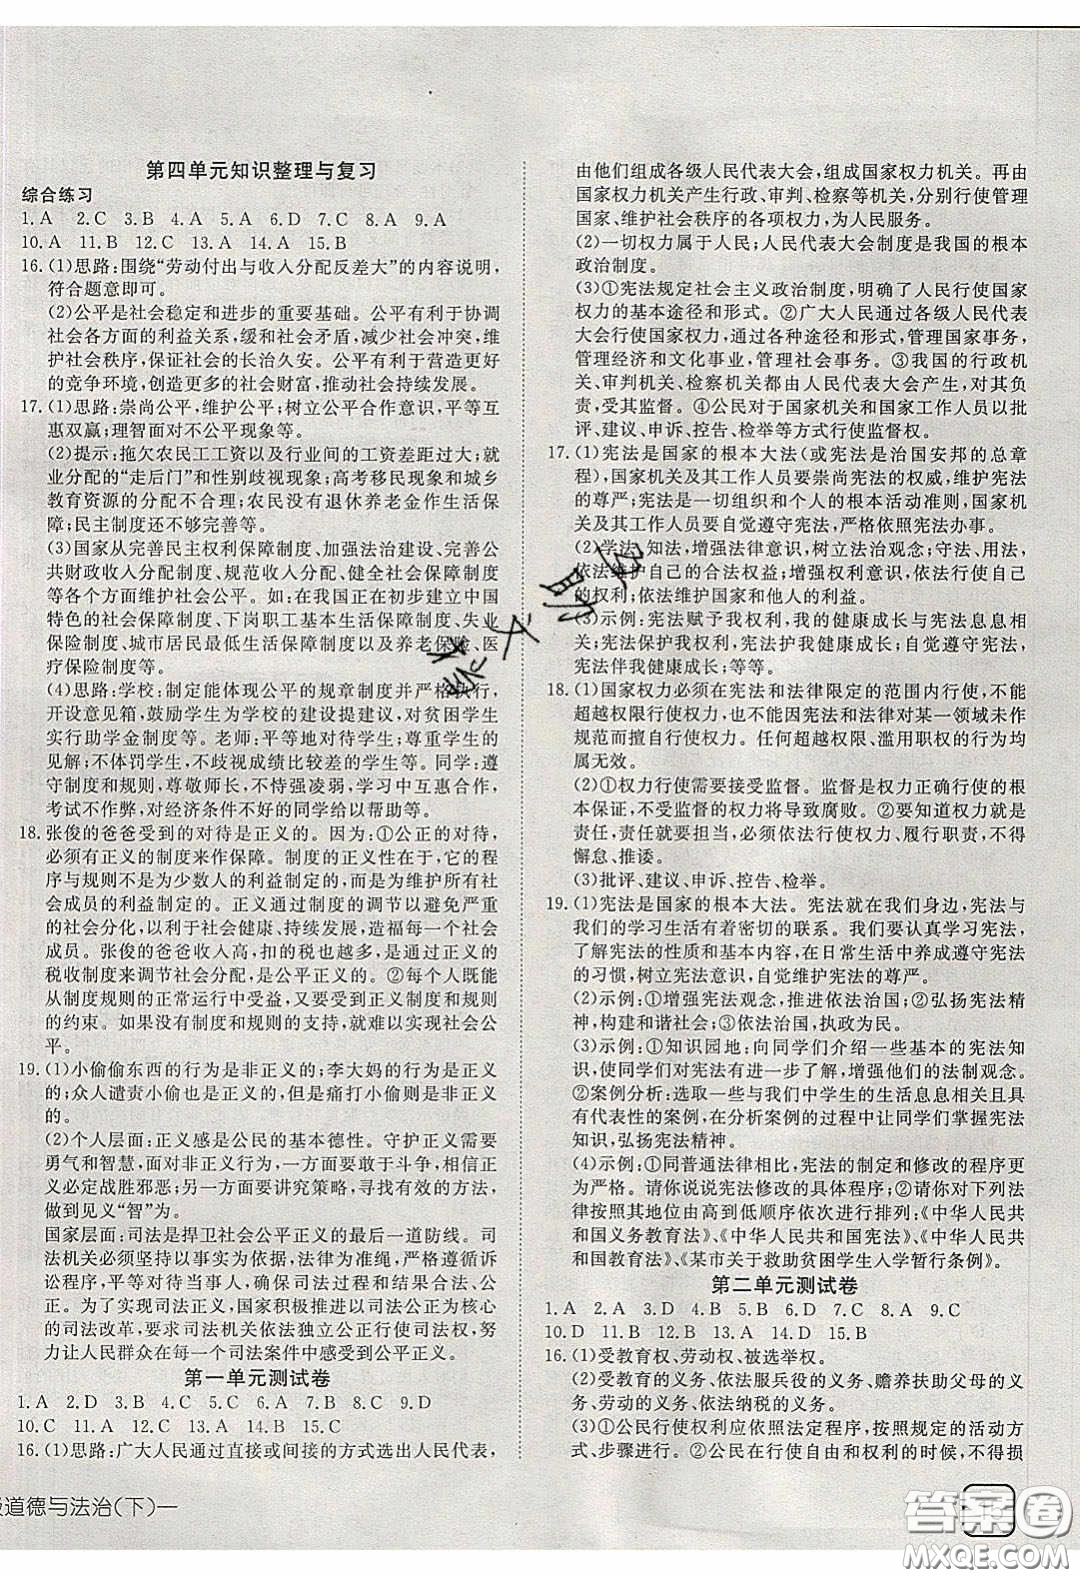 第四单元知识整理与复习
综合练习
1.A 2.C 3.B 4.A 5.A 6.D 7.C 8.A 9.A
10.A 11.B 12.C 13.A 14.A 15.B
16.(1)思路:围绕“劳动付出与收入分配反差大”的内容说明,
符合题意即可。
(2)公平是社会稳定和进步的重要基础。公平有利于协调
社会各方面的利益关系,缓和社会矛盾,减少社会冲突,维
护社会秩序,保证社会的长治久安。公平有利于营造更好
的竞争环境,创造更多的社会财富,推动社会持续发展。
17.(1)思路:崇尚公平,维护公平;树立公平合作意识,平等互
惠双赢;理智面对不公平现象等。
(2)提示:拖欠农民工工资以及行业间的工资差距过大;就
业分配的“走后门”和性别歧视现象;高考移民现象和城乡
教育资源的分配不合理;农民没有退休养老金作生活保
障;民主制度还不够完善等。
(3)国家从完善民主权利保障制度、加强法治建设、完善公
共财政收入分配制度、规范收入分配、健全社会保障制度
等各个方面维护社会公平。如:在我国正在初步建立中国
特色的社会保障制度、下岗职工基本生活保障制度、失业
保险制度、城市居民最低生活保障制度以及养老保险、医
疗保险制度等。
(4)思路:学校:制定能体现公平的规章制度并严格执行,
开设意见箱,鼓励学生为学校的建设提建议,对贫困学生
实行助学金制度等。老师:平等地对待学生;尊重学生的
见解;不体罚学生,不歧视成绩比较差的学生等。同学:遵
守制度和规则,尊敬师长,不恃强凌弱,学习中互惠合作,
考试不作弊,对经济条件不好的同学给以帮助等。
18.张俊的爸爸受到的对待是正义的。因为:①公正的对待,
必须有正义的制度来作保障。制度的正义性在于,它的程
序与规则不是为少数人的利益制定的,而是为维护所有社
会成员的利益制定的。正义通过制度的调节以避免严重
的社会分化,有利于社会健康、持续发展,造福每一个社会
成员。张俊的爸爸收入高,扣的税也越多,是通过正义的
税收制度来调节社会分配,是公平正义的。②每个人既能
从制度规则的正常运行中受益,又要受到正义制度和规则
的约束。如果没有制度和规则的支持,就难以实现社会公
平。
19.(1)小偷偷东西的行为是非正义的;李大妈的行为是正义
的;众人谴责小偷也是正义的,但是痛打小偷则是非正义
的。
(2)个人层面:正义感是公民的基本德性。守护正义需要
勇气和智慧,面对非正义行为,一方面要敢于斗争,相信正
义必定战胜邪恶;另一方面要讲究策略,寻找有效的方法,
做到见义“智”为。
国家层面:司法是捍卫社会公平正义的最后一道防线。司
法机关必须坚持以事实为依据、法律为准绳,严格遵循诉
讼程序,平等对待当事人,确保司法过程和结果合法、公
正。为了实现司法正义,国家积极推进以司法公正为核心
的司法改革,要求司法机关依法独立公正行使司法权,努
力让人民群众在每一个司法案件中感受到公平正义。
第一单元测试卷
1.A 2.D 3.B 4.C 5.A 6.D 7.D 8.D 9.D
10.C 11.C 12.D 13.A 14.A 15.C
16.(1)思路:广大人民通过直接或间接的方式选出人民代表,
由他们组成各级人民代表大会,组成国家权力机关。再由
国家权力机关产生行政、审判、检察等机关,分别行使管理
国家、维护社会秩序的各项权力,为人民服务。
(2)一切权力属于人民;人民代表大会制度是我国的根本
政治制度。
(3)①宪法规定社会主义政治制度,明确了人民行使国家
权力的基本途径和形式。②广大人民通过各级人民代表
大会行使国家权力,通过各种途径和形式,管理国家事务,
管理经济和文化事业,管理社会事务。③我国的行政机
关、审判机关、检察机关都由人民代表大会产生,对其负
责,受其监督。④公民对于国家机关和国家工作人员以批
评、建议、申诉、控告、检举等方式行使监督权。
17.(1)宪法是国家的根本大法(或宪法是治国安邦的总章
程),国家机关及其工作人员要崇尚宪法的权威,维护宪法
的尊严;宪法是一切组织和个人的根本活动准则,国家机
关及其工作人员要自觉遵守宪法,严格依照宪法办事。
(2)学法、知法,增强法律意识,树立法治观念;守法、用法,
依法维护自己的合法权益;增强权利意识,依法行使自己
的权利;依法维护国家和他人的利益。
(3)示例:宪法赋予我权利,我的健康成长与宪法息息相
关;宪法保护我权利,宪法护我健康成长;自觉遵守宪法,
宪法伴我健康成长;等等。
18.(1)国家权力必须在宪法和法律限定的范围内行使,不能
超越权限行使权力,也不能因宪法和法律对某一领域未作
规范而滥用权力。任何超越权限、滥用职权的行为均
属无效。
(2)①权力行使需要接受监督。监督是权力正确行使的根
本保证,不受监督的权力将导致腐败。②要知道权力就是
责任,责任就要担当,必须依法行使权力、履行职责,不得
懈怠、推诿。
(3)批评、建议、申诉、控告、检举。
19.(1)宪法是国家的根本大法。宪法就在我们身边,宪法与
我们的学习生活有着密切的联系。我们要认真学习宪法,
了解宪法的性质和基本内容,在日常生活中养成遵守宪法
的习惯,树立宪法意识,自觉维护宪法的尊严。
(2)示例:①增强宪法观念,推进依法治国;②弘扬宪法精
神,构建和谐社会;③依法治国,执政为民。
(3)示例:①知识园地:向同学们介绍一些基本的宪法知
识,使同学们对宪法有进一步的了解,增强他们的法制观念。
②案例分析:选取一些与我们中学生的生活息息相关且
具有代表性的案例,在分析案例的过程中让同学们掌握宪法
知识,弘扬宪法精神。
(4)示例:①同普通法律相比,宪法的制定和修改的程序更
为严格。请你说说宪法修改的具体程序;②请将下列法
律按照其地位由高到低顺序依次进行排列:《中华人民共
和国义务教育法》、《中华人民共和国宪法》、《中华人民共
和国教育法》、《某市关于救助贫困学生入学暂行条例》。
第二单元测试卷
1.A 2.A 3.D 4.D 5.B 6.D 7.B 8.A 9.C
10.D 11.B 12.C 13.D 14.D 15.B
16.(1)受教育权、劳动权、被选举权。
(2)受教育的义务、依法服兵役的义务、赡养扶助父母的义
务、劳动的义务、依法纳税的义务。
(3)①公民行使权利应依照法定程序,按照规定的活动方
式、步骤进行。②公民在行使自由和权利的时候,不得损
级道德与法治(下)一
答案圈
MXQE.COM